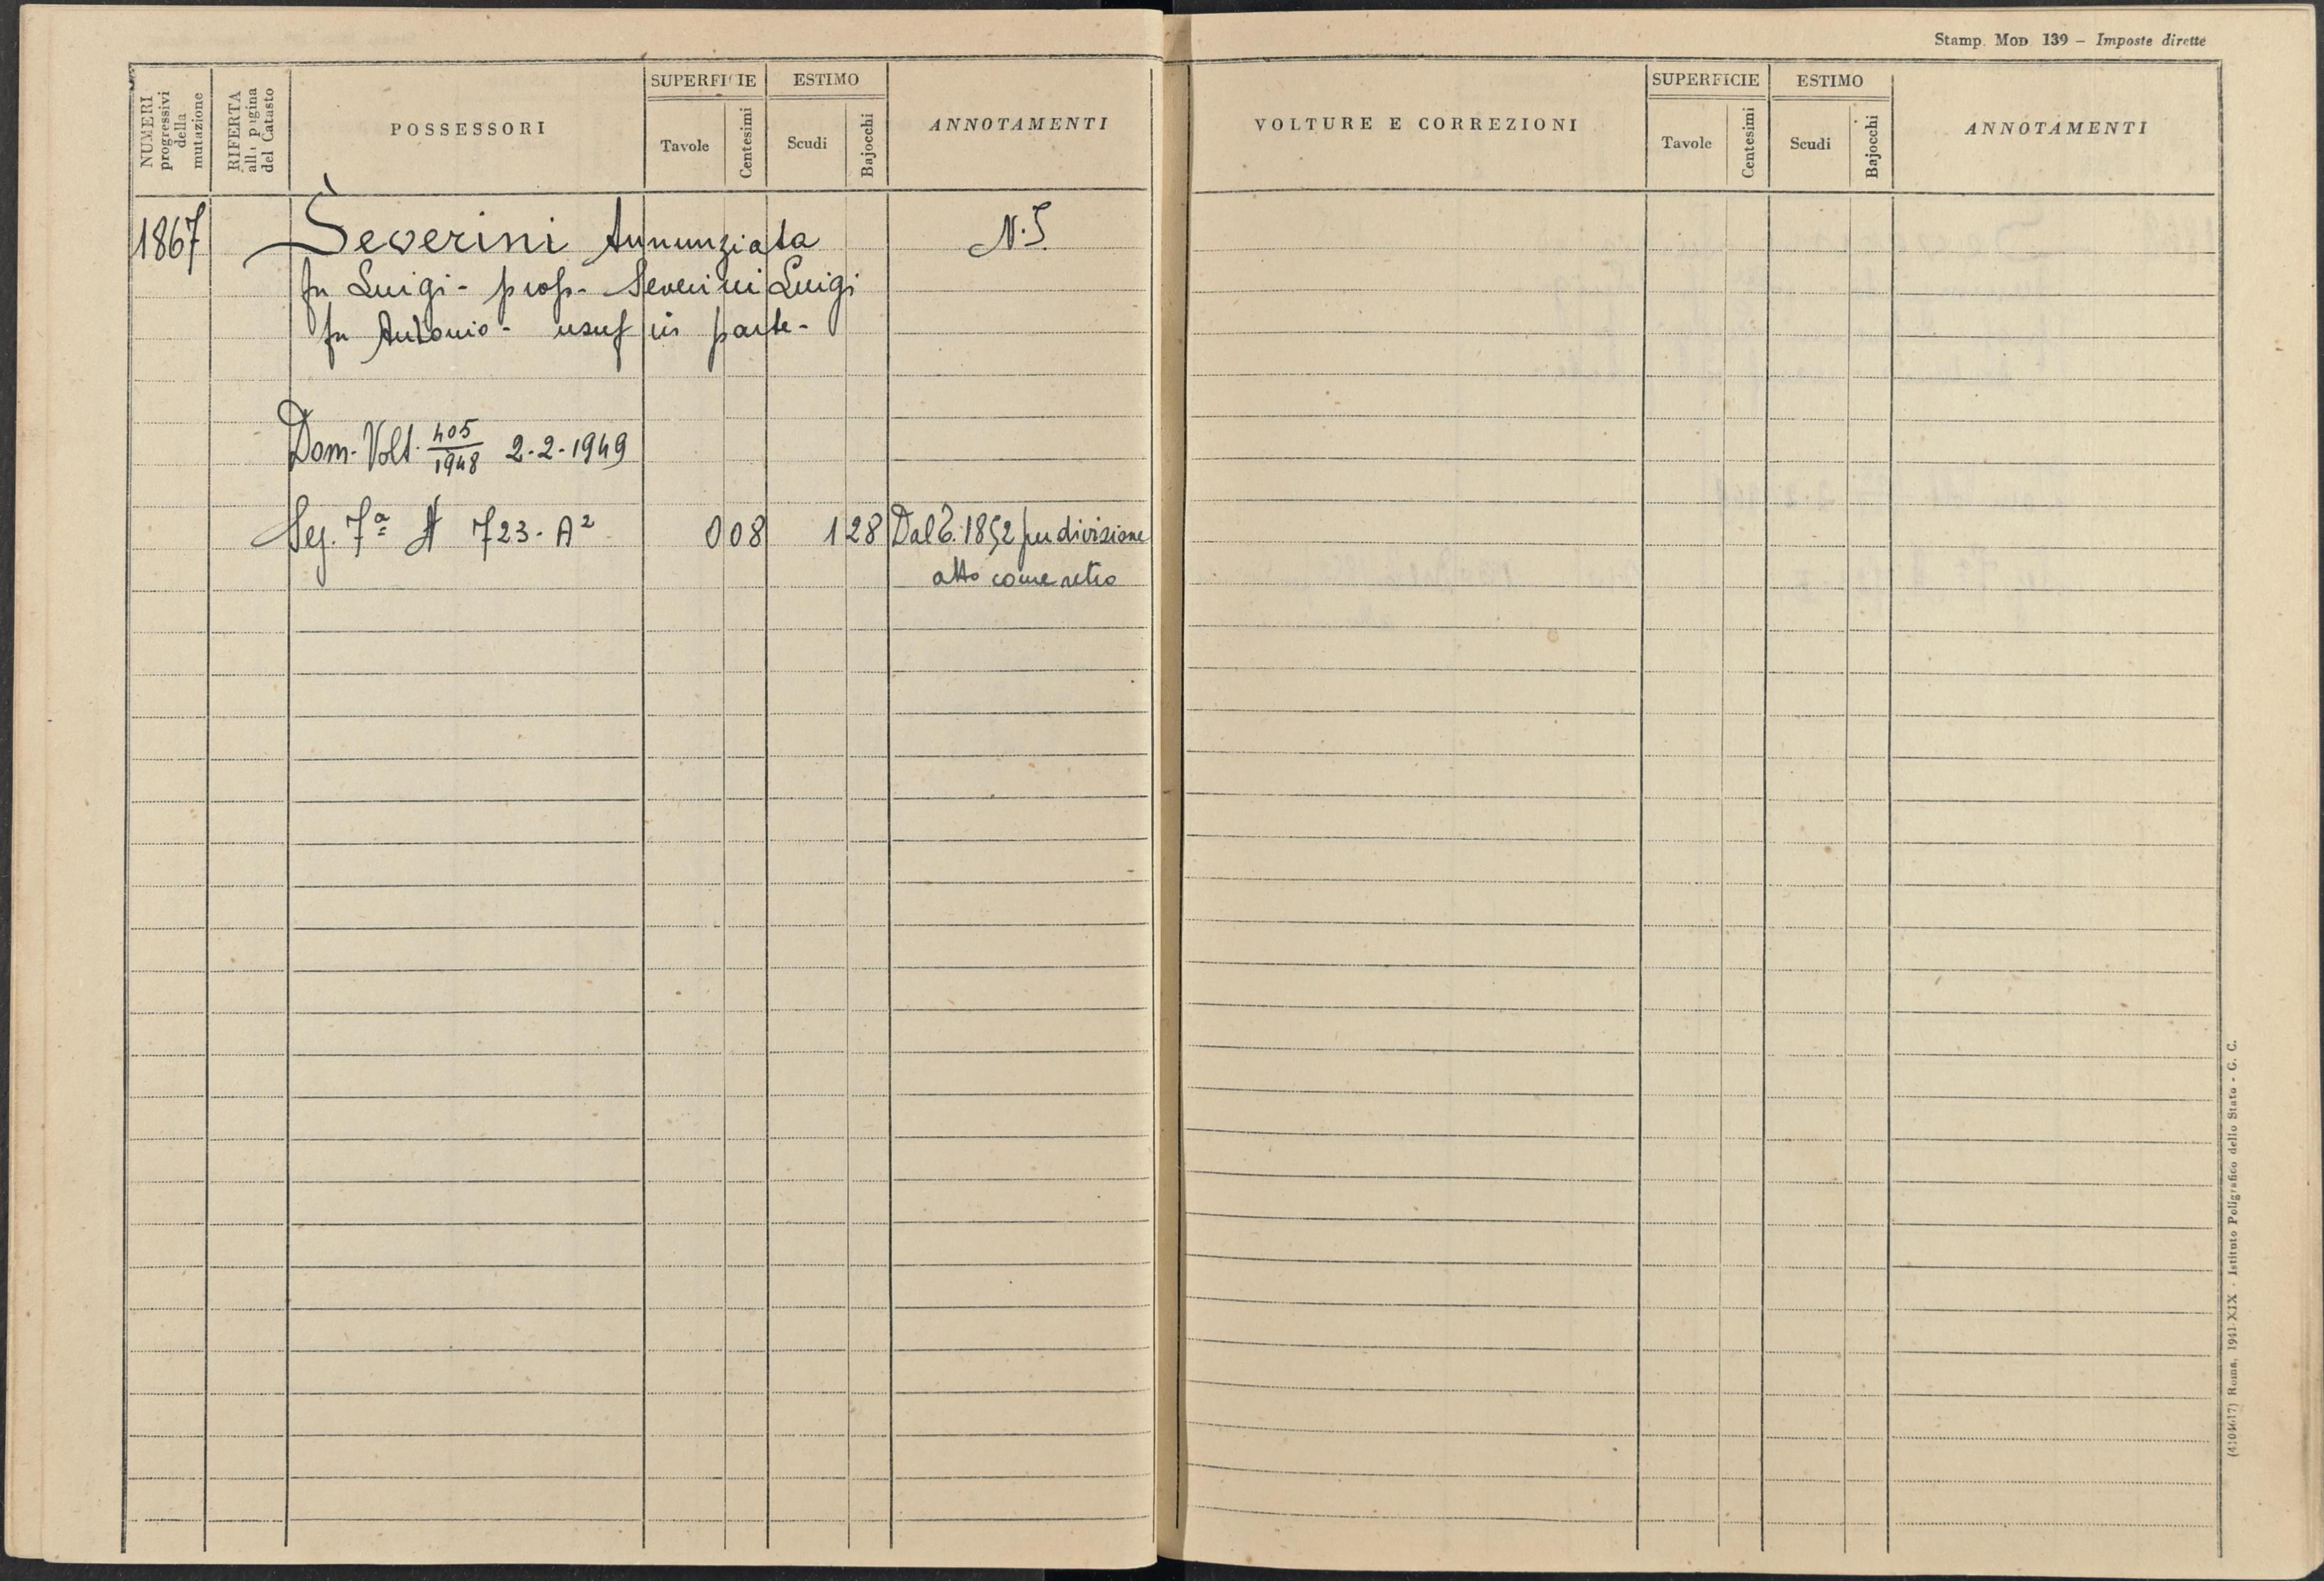 Stamp. Mod 139 – Imposte dirette
NUMERI progressivi della mutazione
RIFERTA alla pagina del Catasto
POSSESSORI
SUPERFICIE
Tavole
Centesimi
ESTIMO
Scudi
Bajocchi
ANNOTAMENTI
VOLTURE E CORREZIONI
SUPERFICIE
Tavole
Centesimi
ESTIMO
Scudi
Bajocchi
ANNOTAMENTI
1867 Severini Annunziata
fu Luigi - prop. Severini Luigi
fu Antonio - usuf in parte -
Dom. Volt. 405/1948 2-2-1949
Seg. 7ª 723. A² 0 08 1 28 Dal 1852 per divisione
atto come retro
(4104617) Roma, 1941-XIX - Istituto Poligrafico dello Stato - G. C.